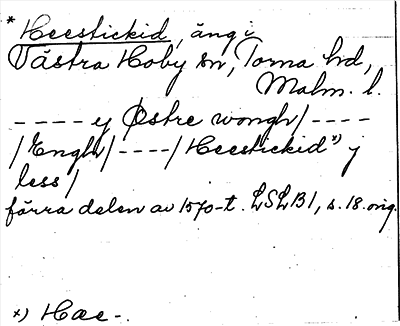 * Heestickid, äng i
Västra Hoby sn, Torna hd,
Malm. l.
---- y Østre wongh/----
/Engh/----/Heestickid x) y
less/
förra delen av 1570-t. LSLB1, s. 18. orig.
x) Hae-.